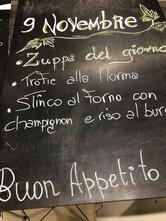 9 Novembre
• Zuppa del giorno
• Trofie alla Norma
• Stinco al forno con
champignon e riso al burro
Buon Appetito